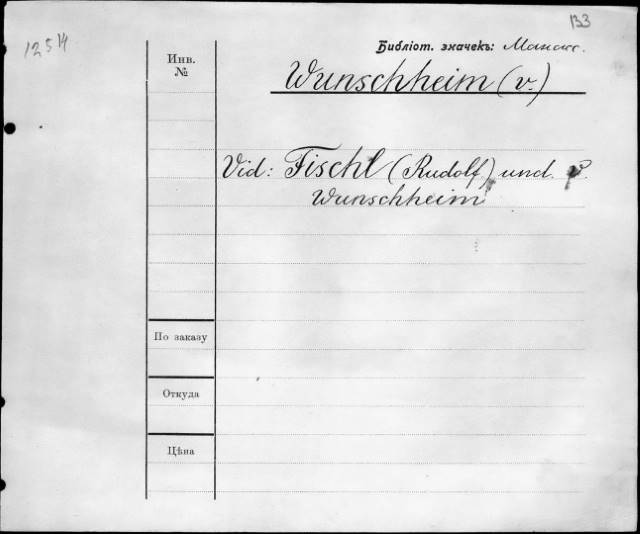 133
1254
Библіот. значекъ: Манасс.
Инв.
№
Wunschheim (v.)
Vid: Fischl (Rudolf) und v.
Wunschheim
По заказу
Откуда
Цѣна